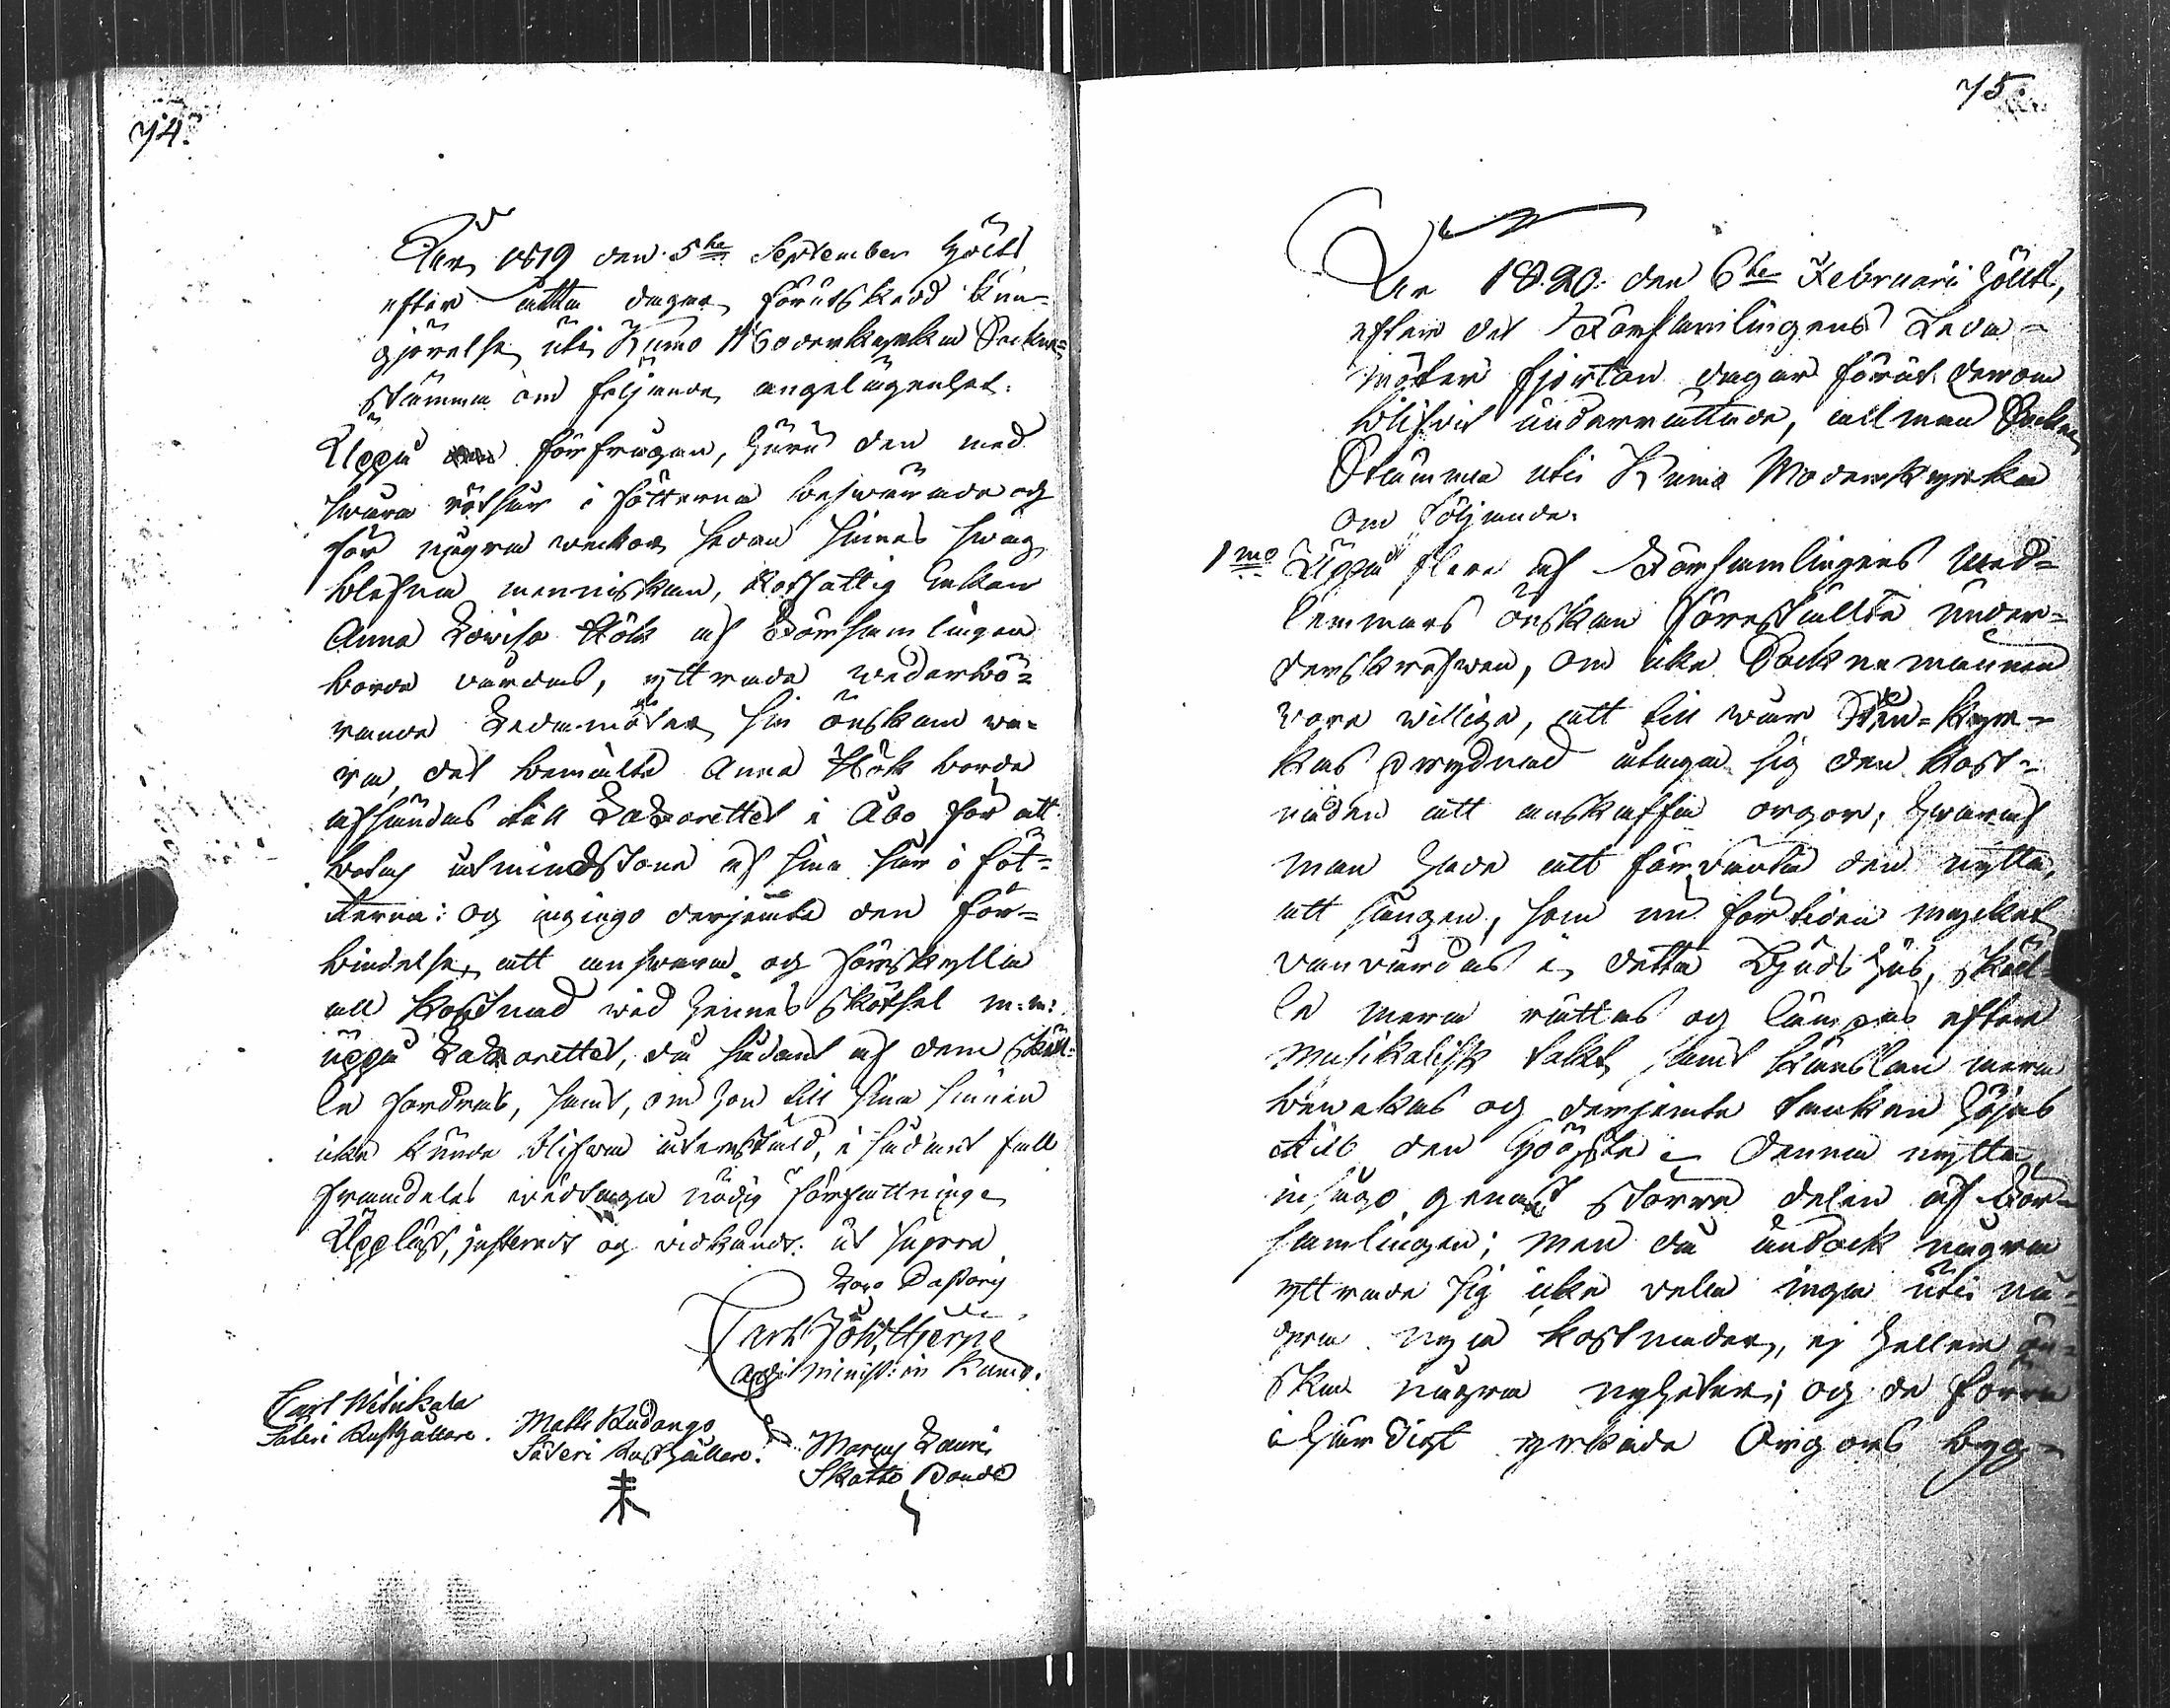 74.
År 1819 den 5te September hölts
efter åtta dagar förutskedd kun-
gjörelse uti Kumo Moderkyrka Sockne-
stämma om följande angelägenhet.
Uppå förfrågan, huru den med
svåra rötsår i fötterna besvärade og
för några veckor sedan sinnes svag
blefna menniskan, Rotfattig Enkan
Anna Lovisa Hök af Församlingen
borde vårdas, yttrade vederbö-
rande Ledamöter sin önskan va-
ra, det bemälte Anna Hök borde
afsändas till Lazarettet i Åbo för att
botas åtminstone af sina sår i föt-
terna: og ingingo derjemte den för-
bindelse, att ansvara og förskylla
all kostnad wid hennes skötsel m:m:
uppå Lazarettet, då sådant af dem skul-
le fordras, samt, om hon till sina sinnen
icke kunde blifva återstäld, i sådant fall
framdeles widtaga nödig författning.
Uppläst, justeradt og vidkändt: ut supra
Loco Pastoris
Carl Höldtstjerne
Adj: Minist: in Kumo.
Carl Witikala
Säteri Rusthållare.
Matts Rudanga
Säteri Rusthållare.
Marcus Lauri
Skatte Bonde
75.
År 1820. den 6te Februari hölts,
efter det Församlingens Leda-
möter fjorton dagar förut derom
blifvit underrättade, allmän Sockne
Stämma uti Kumo Moderkyrka
om följande.
1mo Uppå flere af Församlingens Med-
lemmars önskan föreställte under-
derskrefven, om icke Sockne männen
vore willige, att till wår Sten-kyr-
kas prydnad utaga sig den kost-
naden att anskaffa orgor; hwaraf
man hade att förvänta den nytta,
att sången, som nu för tiden mycket
vanvårdas i detta Guds hus, skul-
le mera rättas og lämpas efter
Musikalisk takt, samt känslan mera
bevekas og derjemte tanken höjas
till den Högste. Denna nytta
insågo genast större delen af För-
samlingen; men då ändock några
yttrade sig icke vela inga uti nå-
gra nya kostnader, ej heller ön-
ska några nyheter; og de förra
ihärdigt yrkade Orgors byg-